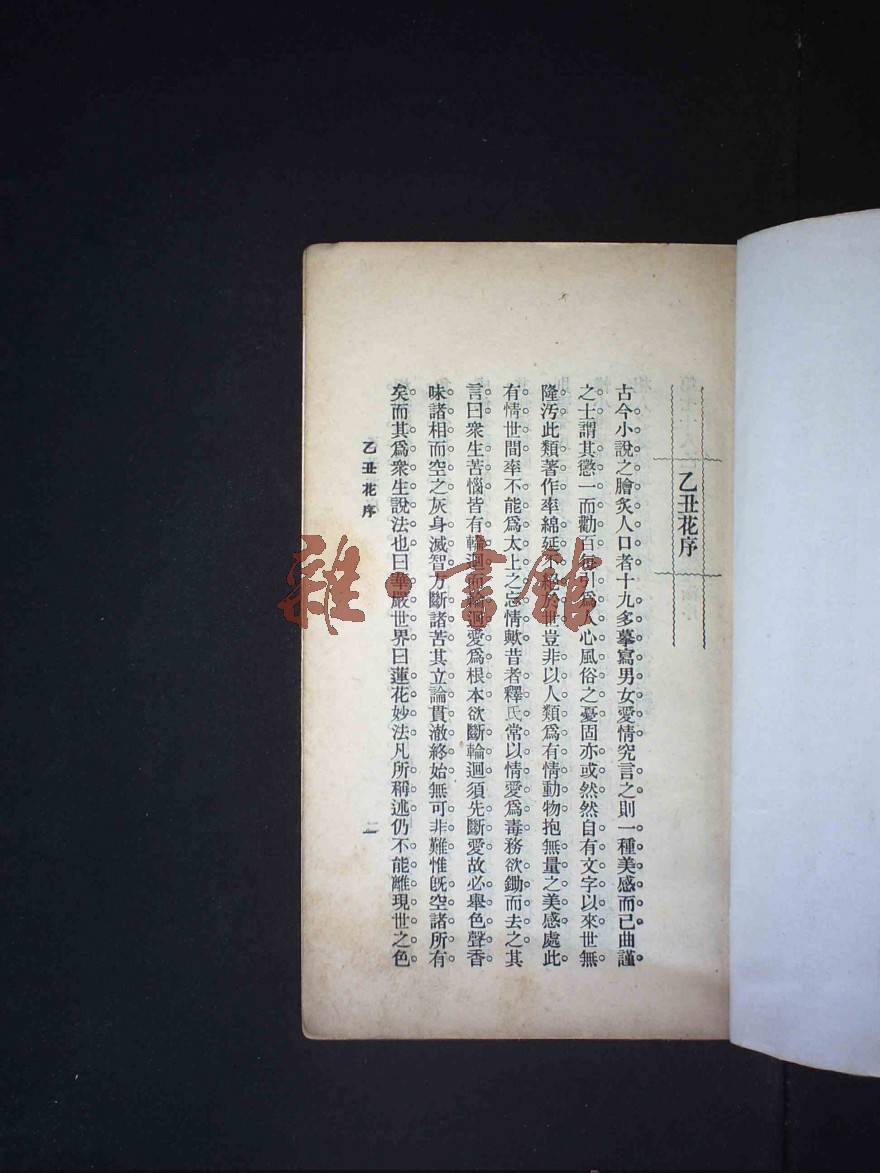 乙丑花序
古今小說之膾炙人口者十九多摹寫男女愛情究言之則一種美感而已曲謹
之士謂其懲一而勸百每引爲人心風俗之憂固亦或然然自有文字以來世無
隆汚此類著作率綿延不於世豈非以人類爲有情動物抱無量之美感處此
有情世間率不能爲太上之忘情歟昔者釋氏常以情愛爲毒務欲鋤而去之其
言曰衆生苦惱皆有輪迴而輪迴愛爲根本欲斷輪迴須先斷愛故必舉色聲香
味諸相而空之灰身滅智方斷諸苦其立論貫澈終始無可非難惟旣空諸所有
矣而其爲衆生說法也曰華嚴世界曰蓮花妙法凡所稱述仍不能離現世之色
乙丑花序
雜·書館